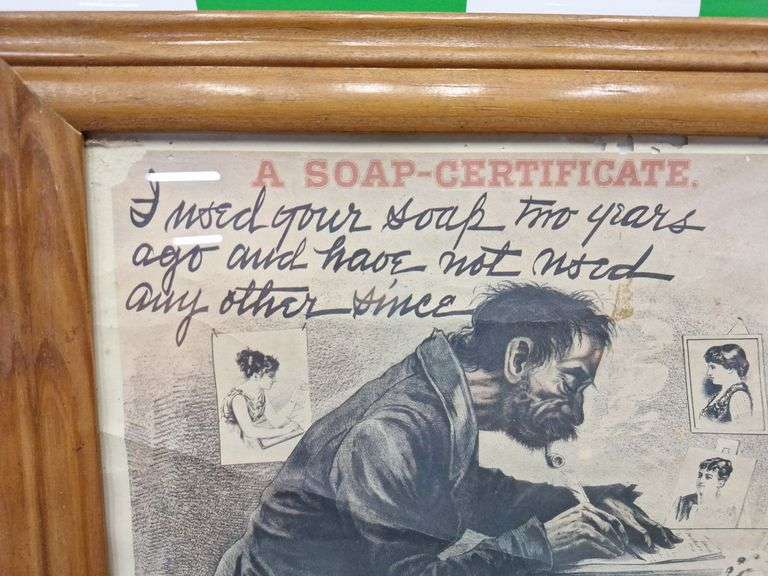 A SOAP-CERTIFICATE.
I used your soap two years
ago and have not used
any other since